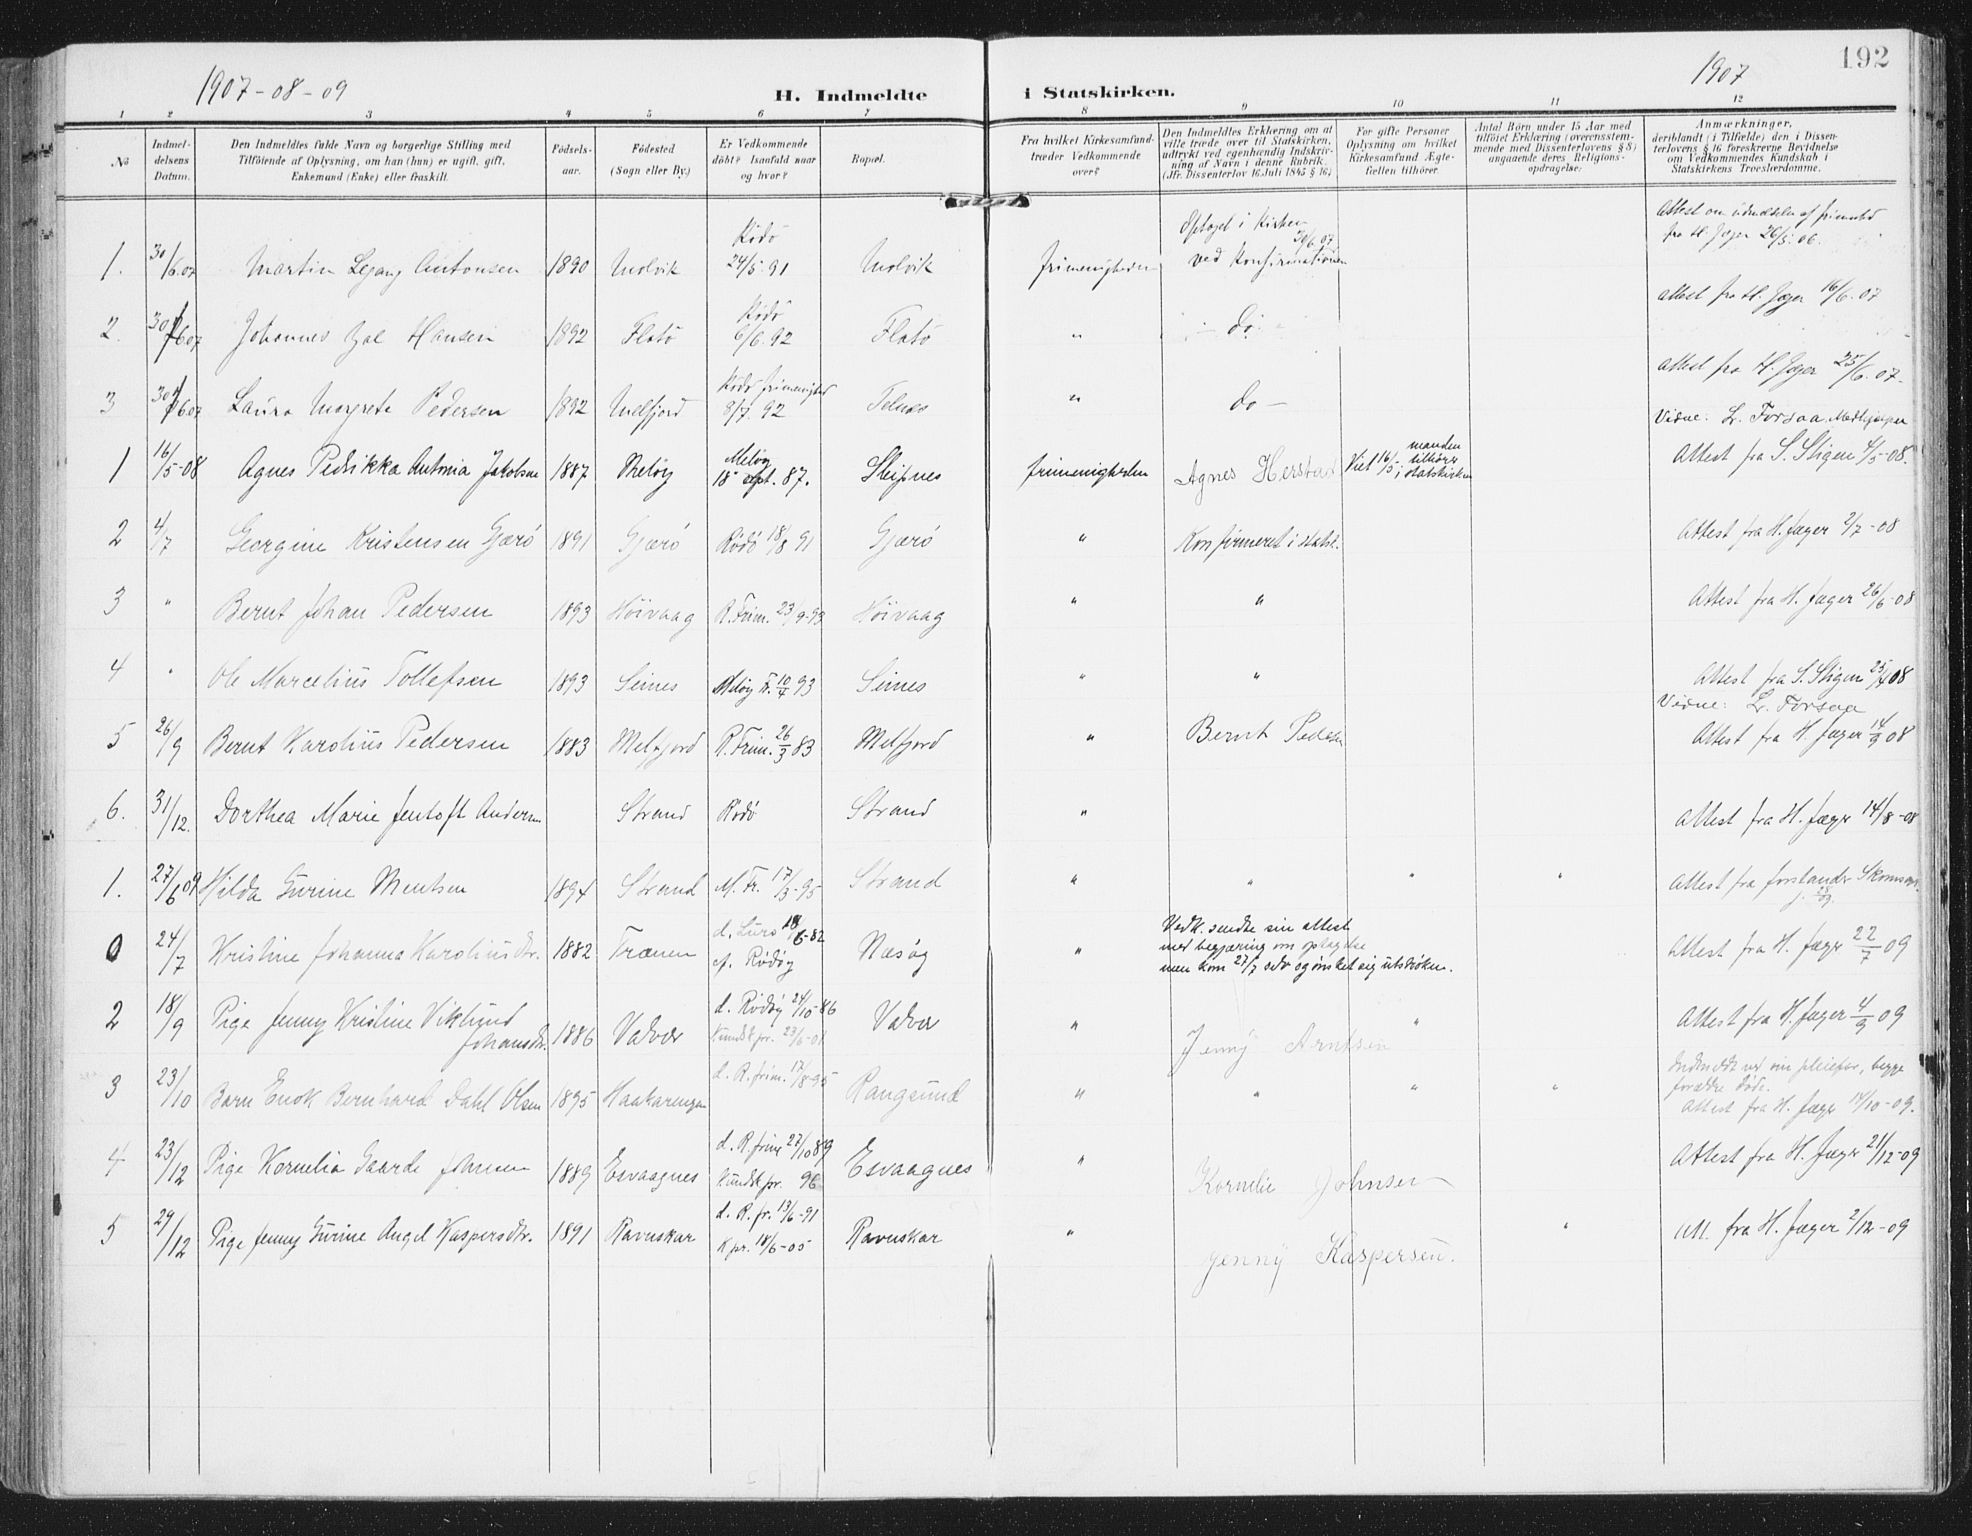 1907-08-09
H. Indmeldte i Statskirken.
1907
192
1 2 3 4 5 6 7 8 9 10 11 12
No
Indmel-
delsens
Datum.
Den Indmeldtes fulde Navn og borgerlige Stilling med
Tilföiende af Oplysning, om han (hun) er ugift, gift,
Enkemand (Enke) eller fraskilt.
Födsels-
aar.
Födested
(Sogn eller By.)
Er Vedkommende
döbt? Isaafald naar
og hvor?
Bopæl.
Fra hvilket Kirkesamfund
træder Vedkommende
over?
Den Indmeldtes Erklæring om at
ville træde over til Statskirken,
udtrykt ved egenhændig Indskriv-
ning af Navn i denne Rubrik.
(Jfr. Dissenterlov 16 Juli 1845 § 16)
For gifte Personer
Oplysning om hvilket
Kirkesamfund Ægte-
fællen tilhörer.
Antal Börn under 15 Aar med
tilföiet Erklæring (overensstem-
mende med Dissenterlovens § 8)
angaaende deres Religions-
opdragelse:
Anmærkninger,
deriblandt (i Tilfælde) den i Dissen-
terlovens § 16 foreskrevne Bevidnelse
om Vedkommendes Kundskab i
Statskirkens Troeslærdomme.
1. 30/6.07 Martin Antonsen 1890 Molvik Rödö 24/5.91 Molvik frimenigheden Optaget i Kirken 30/6.07 ved Konfirmationen Attest om udmeldelse af frimenhed fra H. Jæger 26/5.06.
2. 30/6 07 Johannes Hansen 1892 Flatö Rödö 6/6.92 Flatö " do. attest fra H. Jæger 16/6.07
3 30/6 07 Laura Margrete Pedersen 1892 Melfjord Rödö frimenighed 8/7.92 Telnes " do - attest fra H. Jæger 25/6.07.
Vidne: L. Forsaa, Medhjælper
1 16/5-08 Agnes Pedrikka Antonia Jakobsen 1887 Meløy Meløy 18 sept. 87. Sleipnes frimenigheden Agnes Herstad Viet 16/5, manden tilhører statskirken Attest fra S. Stigen 4/5-08.
2 4/7 Georgine Kristensen Gjærö 1891 Gjærö Rödö 18/8 91 Gjærö " Konfirmeret i statsk. Attest fra H. Jæger 2/7-08
3 " Bernt Johan Pedersen 1893 Höivaag R. Frim. 23/9-93 Höivaag " " Attest fra H. Jæger 26/6-08
4 " Ole Marcelius Tollefsen 1893 Seines Meløy Fr. 10/4 93 Seines " " Attest fra S. Stigen 25/4 08
Vidne: L. Forsaa
5 26/9 Bernt Karolius Pedersen 1883 Melfjord R. Frim. 26/3 83 Melfjord " Bernt Pedersen Attest fra H. Jæger 14/9 08
6. 31/12. Dorthea Marie Jentoft Andersen Strand Rödö Strand " Attest fra H. Jæger 14/8-08
1. 27/6 09 Hilda Gurine Mentsen 1894 Strand M. Fr. 17/3-95 Strand " " " " Attest fra forstander
0 24/7 Kristine Johanna Karoliusdtr. 1882 Trænen d. Lurö 18/6-82 Rödöy Næsöy " Vedk. sendte sin attest
med begjæring om optagelse
men kom 27/7 selv og ønsket sig utströken. Attest fra H. Jæger 22/7 09
2 18/9 Pige Jenny Kristine Viklund Johansdtr. 1886 Valvær d. Rödöy 24/10-86 Kundsk. pr. 23/6-01 Valvær " Jenny Arntsen " Attest fra H. Jæger 4/9 09
3 23/10 Barn Enok Bernhard Dahl Olsen 1895 Haakarengen d. R. frim. 17/8-95 Rangsund " " " " Indmeldt ved sin pleiefar, begge
forældre döde.
Attest fra H. Jæger 14/10-09.
4 23/12 Pige Kornelia Gaarde Johnsen 1889 Esvaagnes d. R. frim 27/10 89 Kundsk. pr. 96 Esvaagnes " Kornelie Johnsen Attest fra H. Jæger 21/12-09
5 29/12 Pige Jenny Gurine Angel Kaspersdtr. 1891 Ravnskar d. R. fr. 13/6-91 K. pr. 18/6-05 Ravnskar " Jenny Kaspersen. " Att. fra H. Jæger 2/12-09